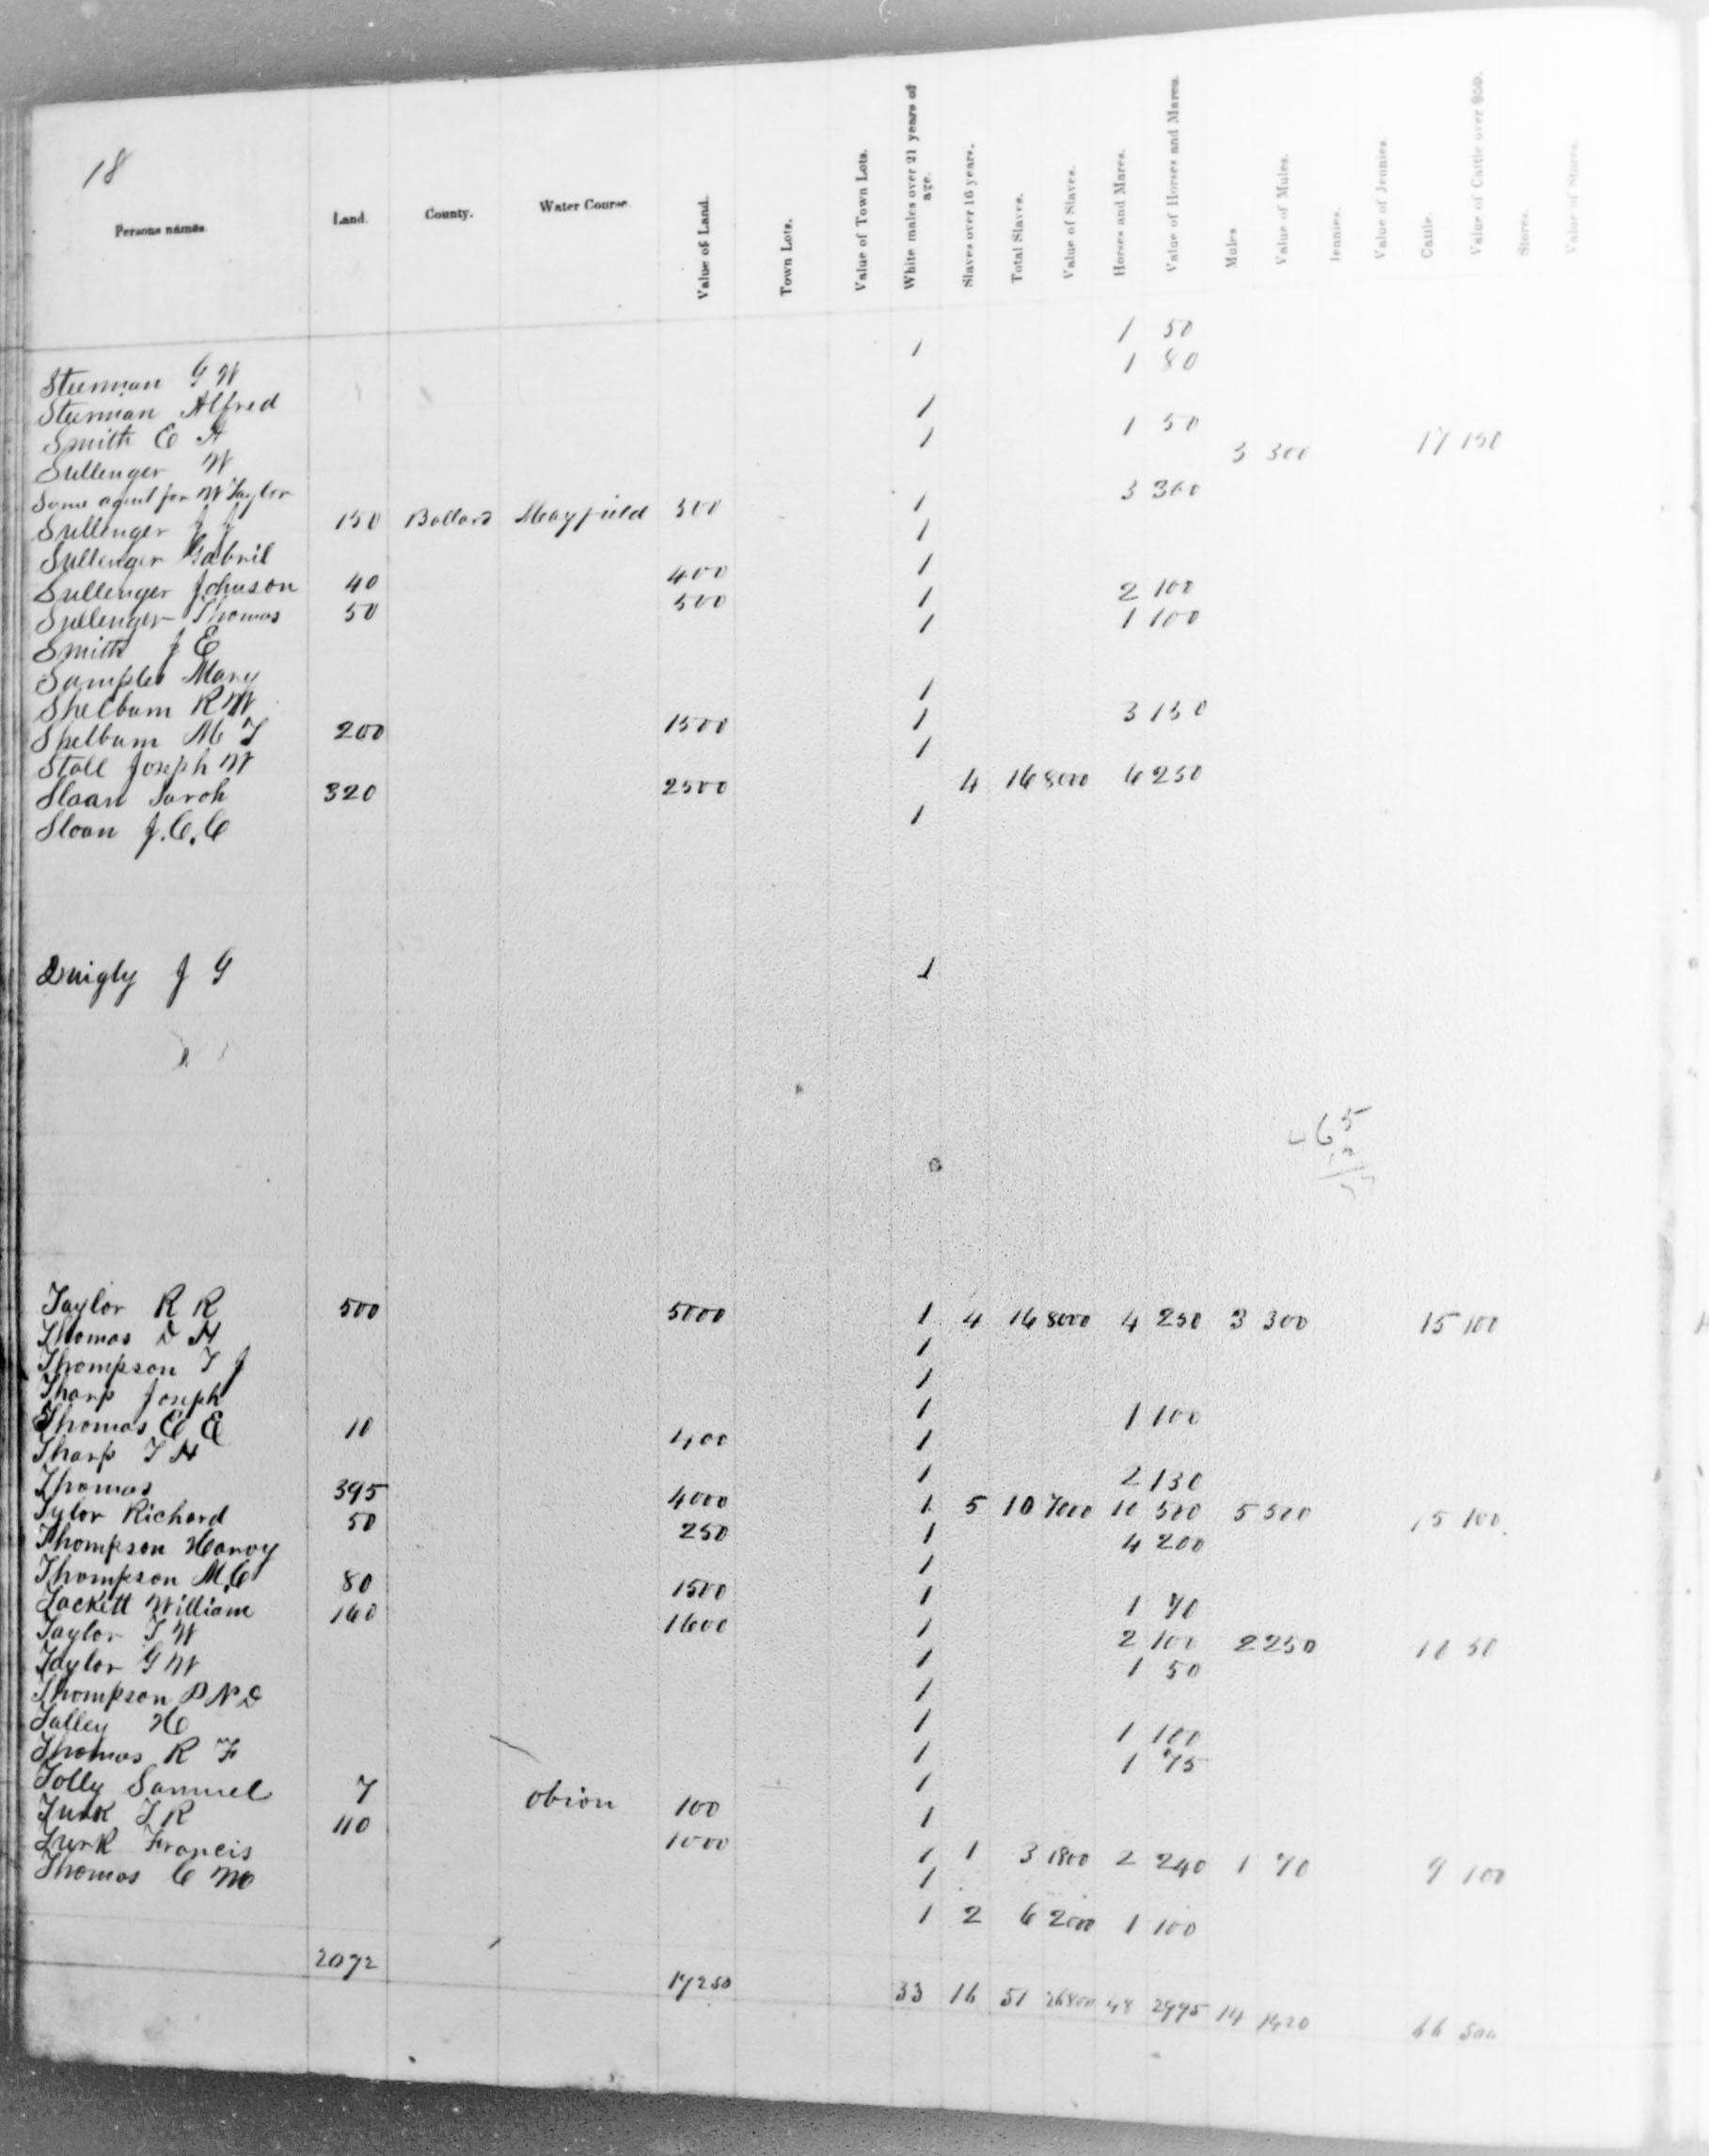 18
Persons names. Land. County. Water Course. Value of Land. Town Lots. Value of Town Lots. White males over 21 years of age. Slaves over 16 years. Total Slaves. Value of Slaves. Horses and Mares. Value of Horses and Mares. Mules Value of Mules. Jennies. Value of Jennies. Cattle. Value of Cattle over $50. Stores. Value of Stores.
Steenman G W 1 1 50
Steenman Alfred 1 80
Smith E A 1
Sullenger W 1 1 50
Same agent for W Taylor 3 300 17 150
Sullenger J J 150 Ballard Mayfield 500 1 3 300
Sullenger Gabril 1
Sullenger Johnson 40 400 1
Sullenger Thomas 50 500 1 2 100
Smith J E 1 1 100
Samples Mary
Shelbum R W 1
Shelbum M T 200 1500 1 3 150
Stall Joseph W 1
Sloan Sarah 320 2500 4 16 8000 6 250
Sloan J. C. C 1
Quigly J G 1
65
Taylor R R 500 5000 1 4 16 8000 4 250 3 300 15 100
Thomas D H 1
Thompson T J 1
Tharp Joseph 1 1 100
Thomas E E 10 400 1
Tharp T H 1 2 130
Thomas 395 4000 1 5 10 7000 10 500 5 500 15 100
Tylor Richard 50 250 1 4 200
Thompson Harvy 1
Thompson M C 80 1500 1 1 70
Tackett William 160 1600 1 2 100 2 250 10 50
Taylor T W 1 1 50
Taylor G W 1
Thompson P N D 1 1 100
Talley H 1 1 75
Thomas R F 1
Tolly Samuel 7 obion 100 1
Turk T R 110 1000 1 1 3 1800 2 240 1 70 9 100
Turk Francis 1
Thomas C M 1 2 6 2000 1 100
2072 17250 33 16 51 26800 48 2995 14 1420 66 500